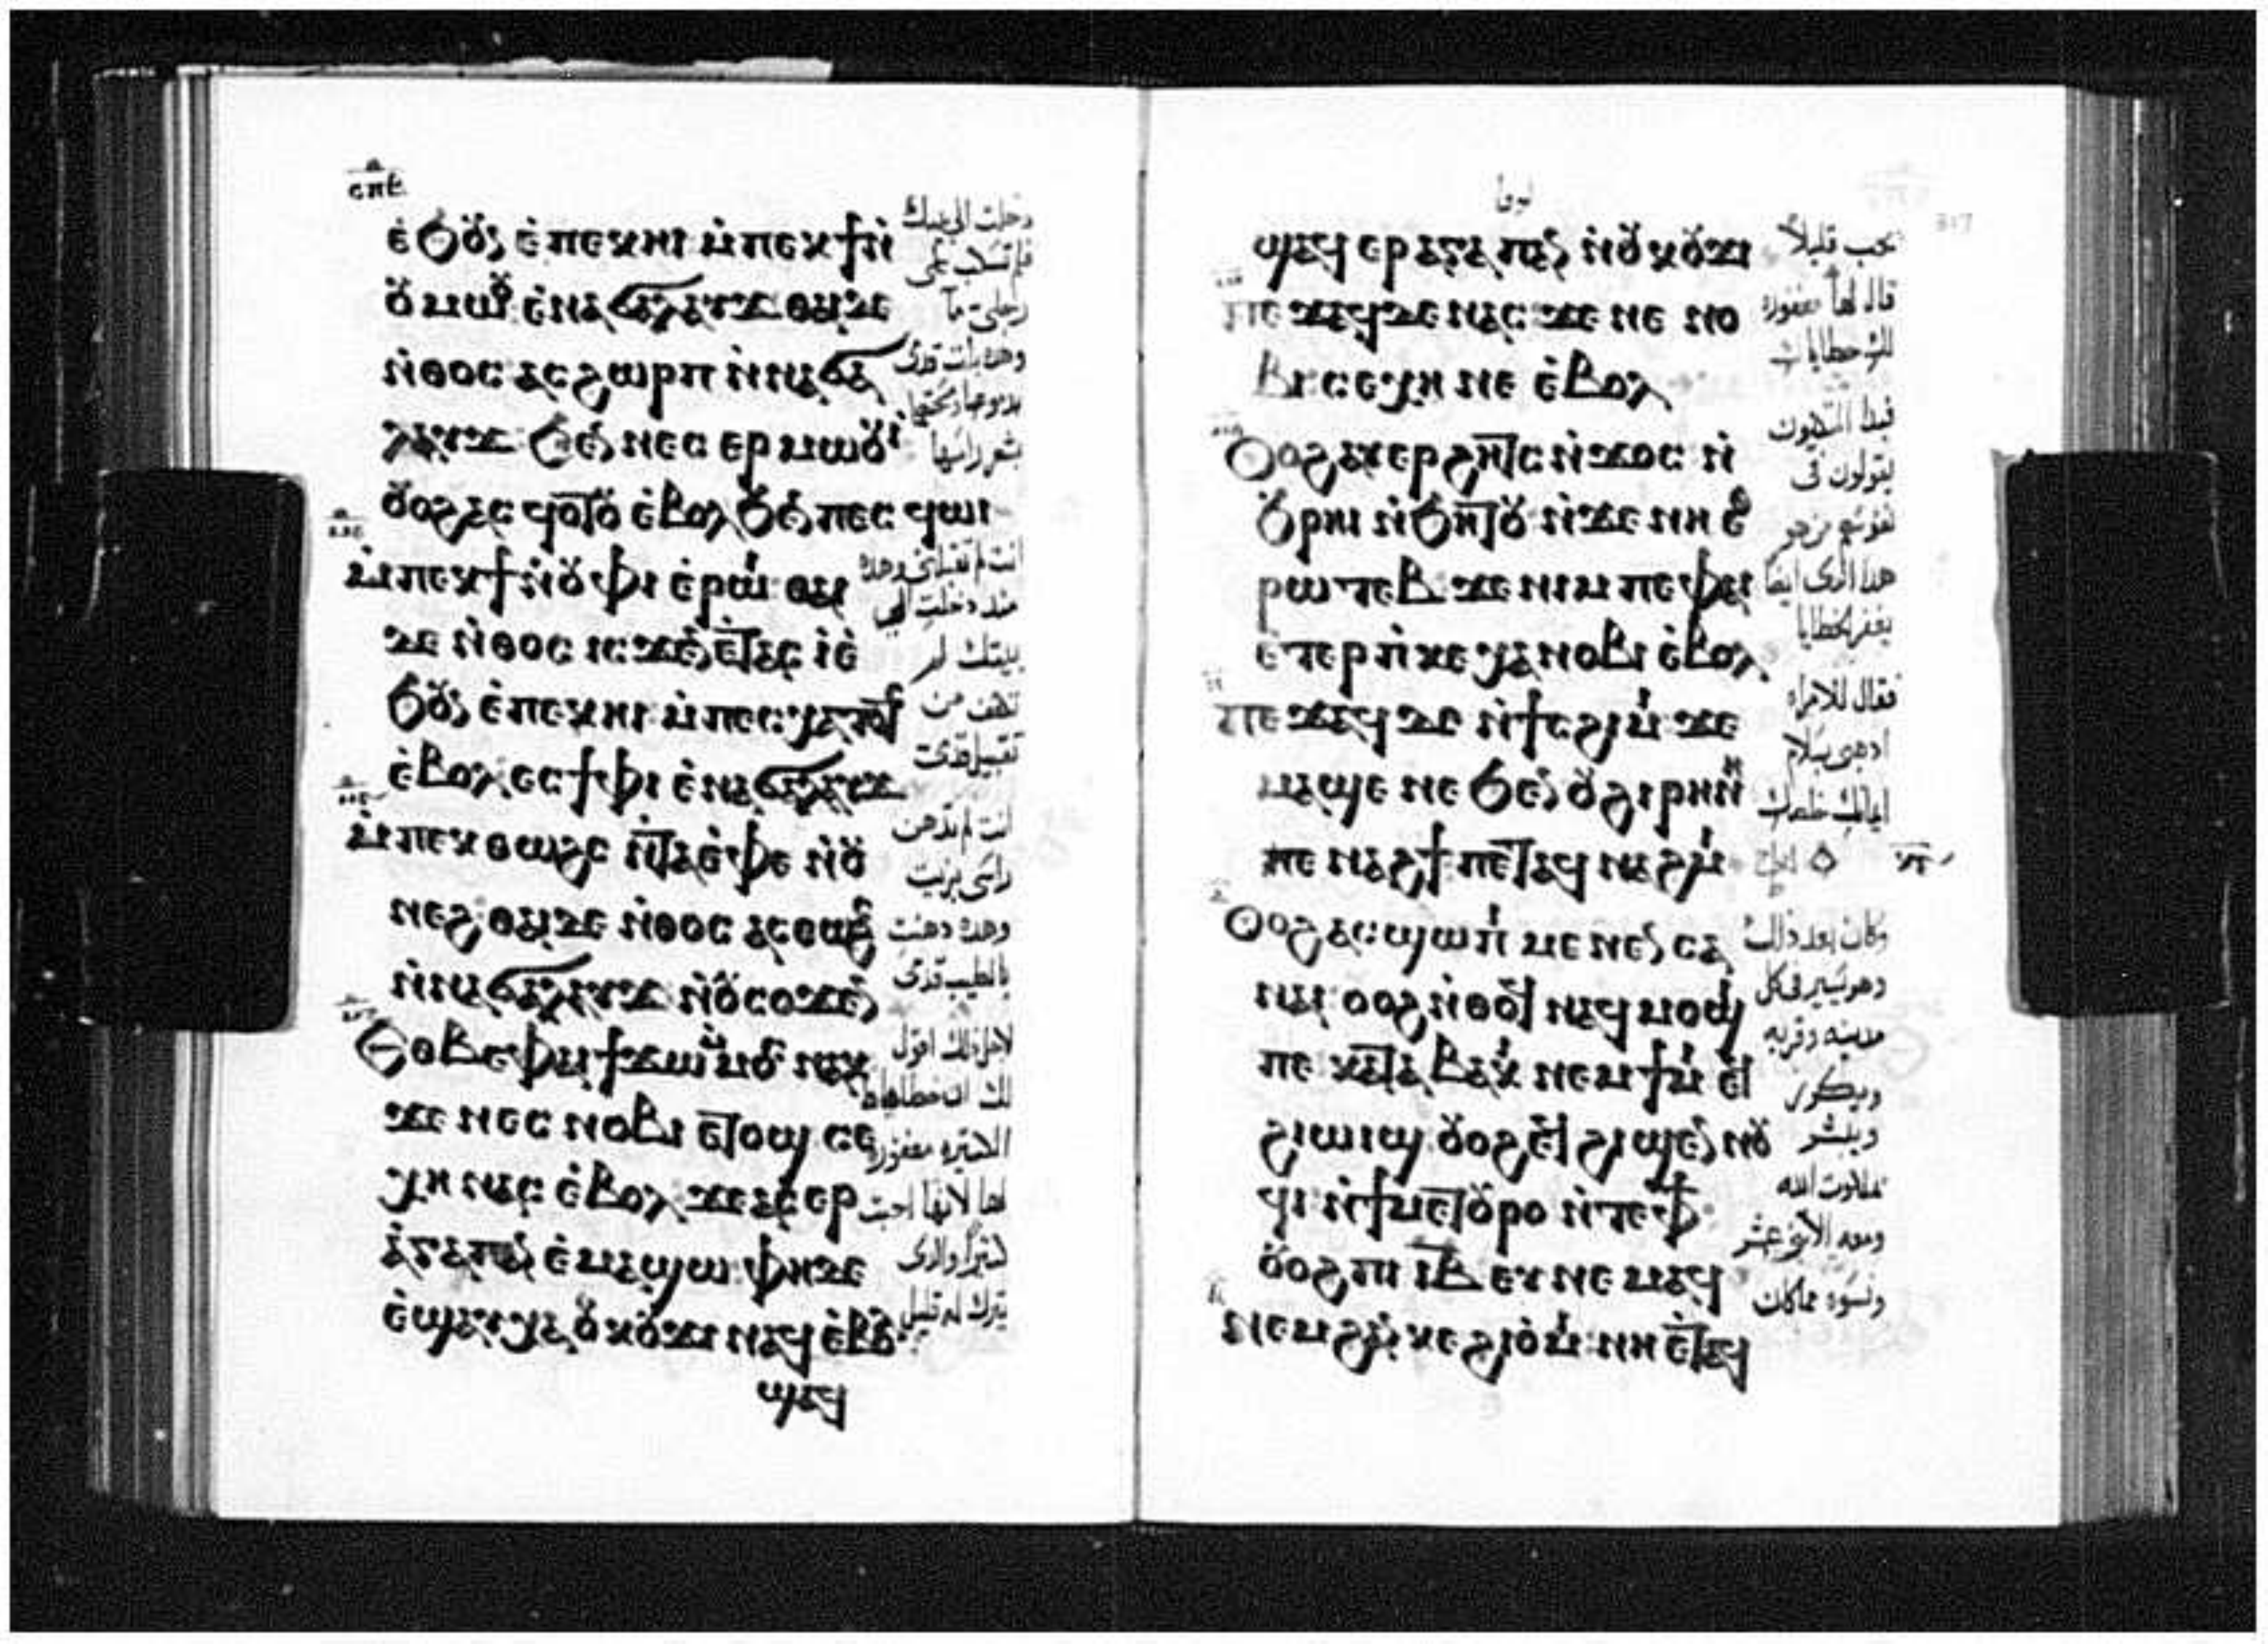 ⲥⲡⲉ
ⲉ̀ϧⲟⲩⲛ ⲉ̀ⲡⲉⲕⲏⲓ ⲙ̀ⲡⲉⲕϯ ⲛ̀
ⲟⲩⲙⲱⲟⲩ ⲉ̀ⲛⲁϭⲁⲗⲁⲩϫ ⲑⲁⲓⲇⲉ
ⲛ̀ⲑⲟⲥ ⲁⲥϩⲱⲣⲡ ⲛ̀ⲛⲁϭⲁ
ⲗⲁⲩϫ ϧⲉⲛ ⲛⲉⲥ ⲉⲣⲙⲱⲟⲩⲓ̀
ⲟⲩⲟϩ ⲁⲥ ϥⲟⲧⲟⲩ ⲉ̀ⲃⲟⲗ ϧⲉⲛ ⲡⲉⲥ ϥⲱⲓ
ⲙ̀ⲡⲉⲕϯ ⲛ̀ⲟⲩⲫⲓ ⲉ̀ⲣⲱⲓ̀ ⲑⲁⲓ
ⲇⲉ ⲛ̀ⲑⲟⲥ ⲓⲥϫⲉⲛ ⲉ̀ⲧⲁⲥ ⲓ̀ ⲉ̀
ϧⲟⲩⲛ ⲉ̀ⲡⲉⲕⲏⲓ ⲙ̀ⲡⲉⲥⲭⲁⲧⲟⲧⲥ
ⲉ̀ⲃⲟⲗ ⲉⲥϯ ⲫⲓ ⲉ̀ⲛⲁϭⲁⲗⲁⲩϫ
ⲙ̀ⲡⲉⲕ ⲑⲱϩⲥ ⲛ̀ⲧⲁⲁ̀ⲫⲉ ⲛ̀ⲟⲩ
ⲛⲉϩ ⲑⲁⲓⲇⲉ ⲛ̀ⲑⲟⲥ ⲁⲥⲑⲱϩⲥ
ⲛ̀ⲛⲁϭⲁⲗⲁⲩϫ ⲛ̀ⲟⲩⲥⲟϫⲉⲛ
Ⲉⲑⲃⲉⲫⲁⲓ ϯϫⲱ ⲙ̀ⲙⲟⲥ ⲛⲁⲕ
ϫⲉ ⲛⲉⲥ ⲛⲟⲃⲓ ⲉⲧⲟϣ ⲥⲉ
ⲭⲏ ⲛⲁⲥ ⲉ̀ⲃⲟⲗ ϫⲉ ⲁⲥ ⲉⲣ
ⲁ̀ⲅⲁⲡⲁⲛ ⲉ̀ⲙⲁϣⲱ ⲫⲏⲇⲉ
ⲉ̀ϣⲁⲩⲭⲁ ⲟⲩⲕⲟⲩϫⲓ ⲛⲁϥ ⲉ̀ⲃⲟⲗ
ϣⲁϥ
دخلت الى بيتك
رجلى ما
بشعر راسها
بيتك لم
تكف من
تقبيل قدمى
انت لم تدهن
راسى بزيت
وهذه دهنت
بالطيب قدمى
لاجل ذلك اقول
لك ان خطاياها
الكثيره مغفوره
لها لانها احبت
كثيرا والذى
يترك له قليل
لوقا
317
ϣⲁϥ ⲉⲣⲁⲅⲁⲡⲁⲛ ⲛ̀ⲟⲩⲕⲟⲩϫⲓ
ⲡⲉϫⲁϥ ⲇⲉ ⲛⲁⲥ ϫⲉ ⲛⲉ ⲛⲟ
ⲃⲓ ⲥⲉⲭⲏ ⲛⲉ ⲉ̀ⲃⲟⲗ
Ⲟⲩⲟϩ ⲁⲩⲉⲣϩⲏⲧⲥ ⲛ̀ϫⲟⲥ ⲛ̀
ϧⲣⲏⲓ ⲛ̀ϧⲏⲧⲟⲩ ⲛ̀ϫⲉ ⲛⲏ ⲉⲑ
ⲣⲱⲧⲉⲃ ϫⲉ ⲛⲓⲙ ⲡⲉ ⲫⲁⲓ
ⲉ̀ⲧⲉⲣ ⲡ̀ⲕⲉ ⲭⲁ ⲛⲟⲃⲓ ⲉ̀ⲃⲟⲗ
ⲡⲉϫⲁϥ ⲇⲉ ⲛ̀ϯⲥϩⲓⲙⲓ ϫⲉ
ⲙⲁϣⲉ ⲛⲉ ϧⲉⲛ ⲟⲩϩⲓⲣⲏⲛⲏ
ⲡⲉ ⲛⲁϩϯ ⲡⲉⲧⲁϥ ⲛⲁϩⲙⲓ
Ⲟⲩⲟϩ ⲁⲥϣⲱⲡⲓ ⲙⲉⲛⲉⲛⲥⲁ
ⲛⲁⲓ ⲟⲩⲟϩ ⲛ̀ⲑⲟϥ ⲛⲁϥ ⲙⲟϣⲓ
ⲡⲉ ⲕⲁⲧⲁ ⲃⲁⲕⲓ ⲛⲉⲙ ϯⲙⲓ ⲉϥ
ϩⲓⲱⲓϣ ⲟⲩⲟϩ ⲉϥ ϩⲓϣⲉⲛⲛⲟⲩ
ϥⲓ ⲛ̀ϯⲙⲉⲧⲟⲩⲣⲟ ⲛ̀ⲧⲉ ⲫϯ
ⲟⲩⲟϩ ⲡⲓ ⲓⲃ ⲉⲩ ⲛⲉⲙⲁϥ
ⲛⲉⲙ ϩⲁⲛ ⲕⲉ ϩⲓⲟ̀ⲙⲓ ⲛⲏ ⲉ̀ⲧⲁϥ
يحب قليلا
قال لها مغفوره
لك خطاياك
فبدا المتكيون
يقولون فى
نفوسهم من هو
هذا الذى ايضا
يغفر الخطايا
فقال للامراه
اذهبى بسلام
ايمانك خلصك
وكان بعد ذلك
وهو يسير فى كل
مدينه وقريه
ويكرز
ويبشر
بملكوت الله
ومعه الاثنى عشر
ونسوه